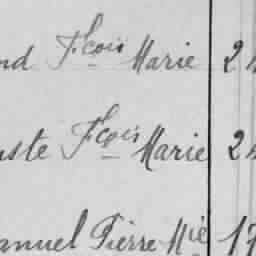 nd Fcois Marie 2
uste Fcois Marie 2
anuel Pierre Mie 17